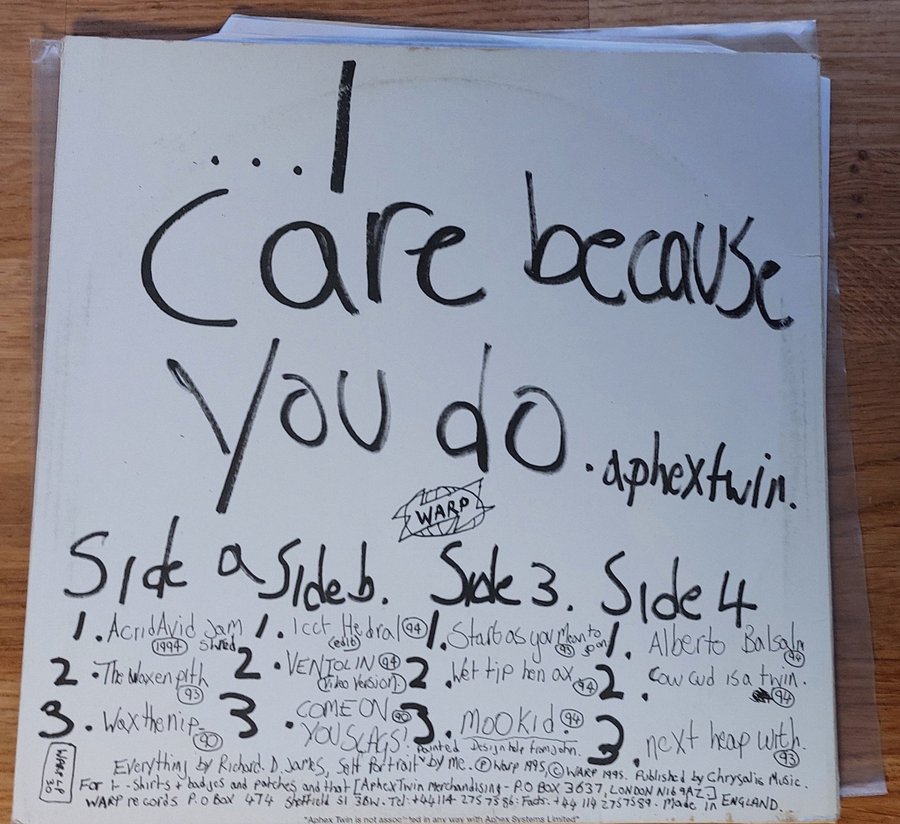 ...I
Care because
You do.
aphextwin.
WARP
Side a
1. AcridAvid Jam
1994 Shred
2. The Waxen pith
93
3. Wax the nip
90
Side b.
1. Icct Hedral 94
(edit)
2. VENTOLIN 94
(Video Version)
3. COME ON 90
YOU SLAGS!
Side 3.
1. Start as you Mean to
93 go on
2. Wet tip hen ax.
94
3. mookid. 94
Side 4
1. Alberto Balsalm
94
2. Cow cud is a twin.
94
3. next heap with.
93
Painted Design hole from John.
Everything by Richard. D. James, Self Portrait by Me. Ⓟ Warp 1995, © WARP 1995. Published by Chrysalis Music.
WARP LP
30
For T-Shirts + badges and patches and that [AphexTwin Merchandising - P.O BOX 3637, LONDON N16 9AZ]
WARP records P.O Box 474 Sheffield S1 3BW. Tel: +44114 2757586: Facts. +44 114 2757589. Made in ENGLAND.
"Aphex Twin is not associated in any way with Aphex Systems Limited"